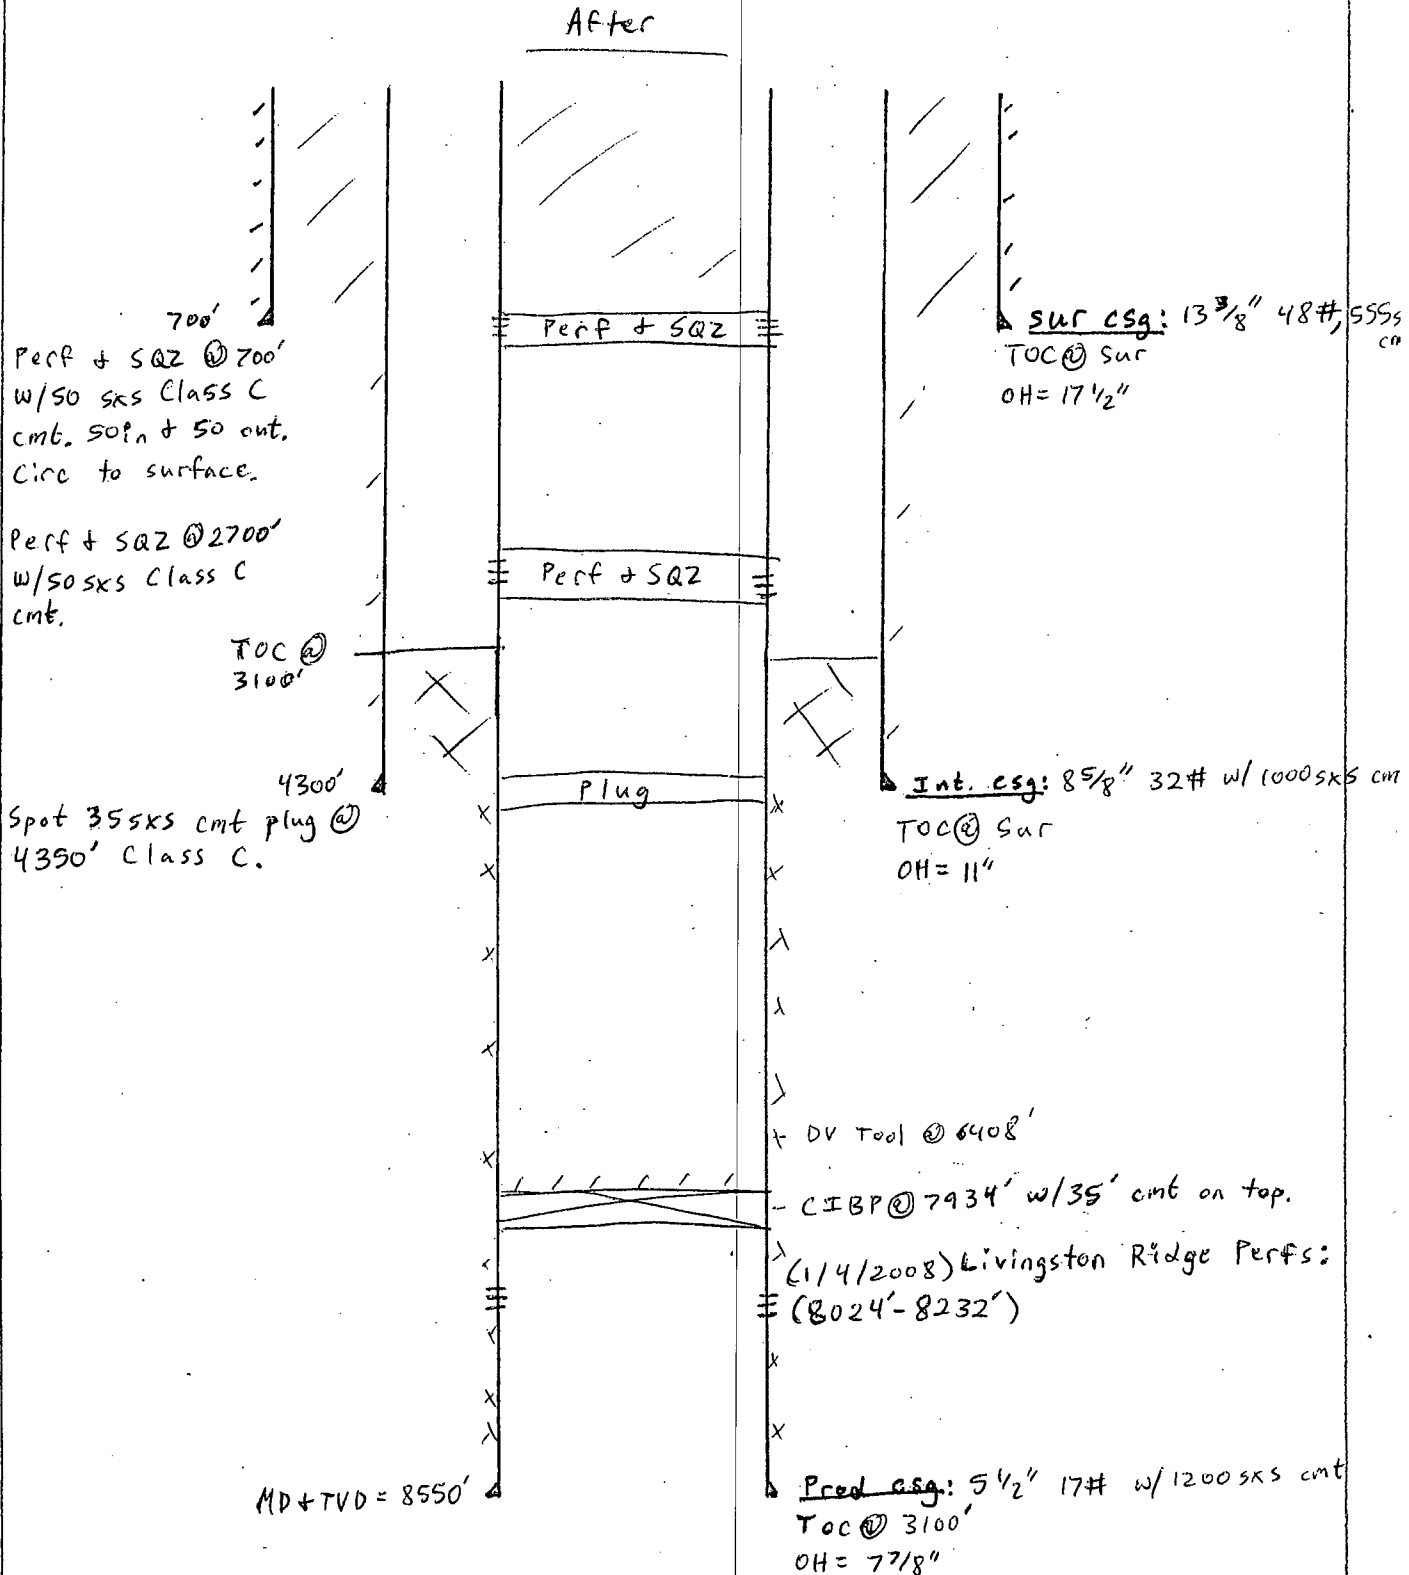 After
700'
Perf & SQZ @ 700'
w/50 sxs Class C
cmt. 50in & 50 out.
Circ to surface.
Perf & SQZ @ 2700'
w/50 sxs Class C
cmt.
TOC @
3100'
4300'
Spot 35 sxs cmt plug @
4350' Class C.
MD & TVD = 8550'
Perf & SQZ
Perf & SQZ
Plug
Sur csg: 13 3/8" 48#, 555s
cm
TOC @ Sur
OH = 17 1/2"
Int. csg: 8 5/8" 32# w/ 1000 sxs cm
TOC @ Sur
OH = 11"
DV Tool @ 6408'
CIBP @ 7934' w/35' cmt on top.
(1/4/2008) Livingston Ridge Perfs:
(8024'-8232')
Prod csg: 5 1/2" 17# w/ 1200 sxs cmt
TOC @ 3100'
OH = 7 7/8"